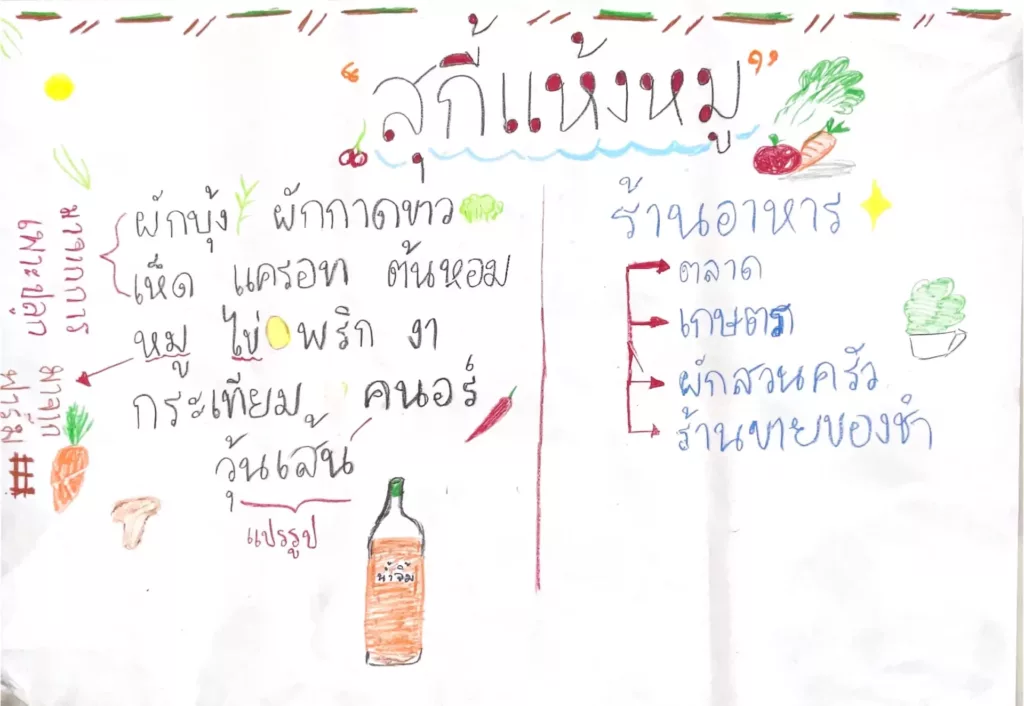 "สุกี้แห้งหมู"
ผักบุ้ง ผักกาดขาว
เห็ด แครอท ต้นหอม
หมู ไข่ พริก งา
กระเทียม คนอร์
วุ้นเส้น
แปรรูป
น้ำจิ้ม
มาจากการ
เพาะปลูก
มาจาก
ฟาร์ม #
ร้านอาหาร
ตลาด
เกษตร
ผักสวนครัว
ร้านขายของชำ